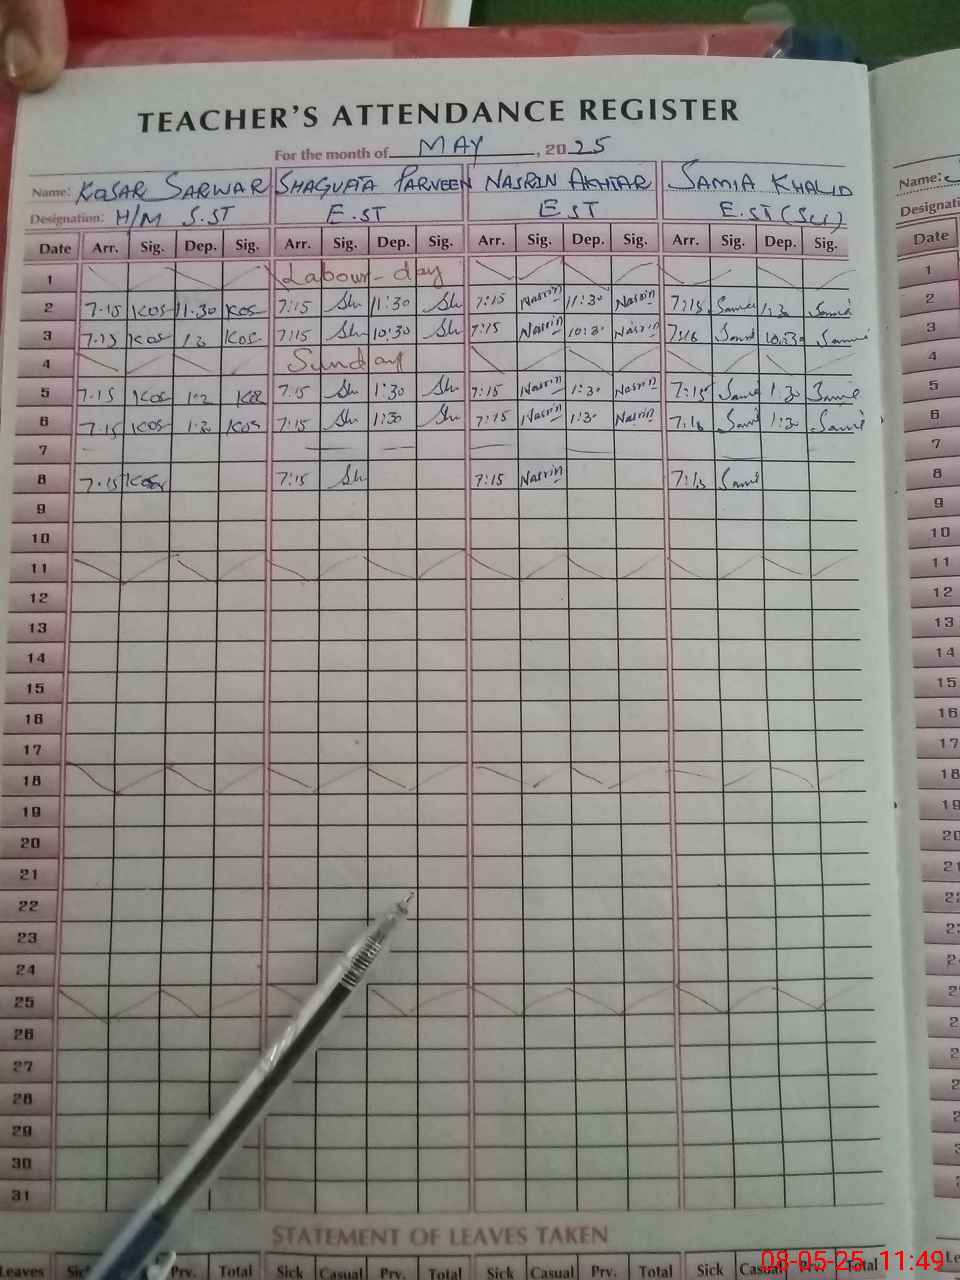 TEACHER'S ATTENDANCE REGISTER
For the month of MAY, 2025
Name: KOSAR SARWAR SHAGUFTA PARVEEN NASRIN AKHTAR SAMIA KHALID Name:
Designation: H/M S.ST E.ST E.ST E.ST (Sci)
Date Arr. Sig. Dep. Sig. Arr. Sig. Dep. Sig. Arr. Sig. Dep. Sig. Arr. Sig. Dep. Sig. Date
1 Labour-day 1
2 7.15 KOS 11.30 KOS 7:15 Sh 11:30 Sh 7:15 Nasrin 11:30 Nasrin 7:15 2
3 7.15 KOS KOS 7:15 Sh 10:30 Sh 7:15 Nasrin 10:30 Nasrin 10:30 3
4 Sunday 4
5 7.15 KOS 7:15 Sh 1:30 Sh 7:15 Nasrin 1:30 Nasrin 7:15 1:30 5
6 7.15 KOS KOS 7:15 Sh 1:30 Sh 7:15 Nasrin 1:30 Nasrin 1:30 6
7 7
8 7.15 7:15 Sh 7:15 Nasrin 8
9 9
10 10
11 11
12 12
13 13
14 14
15 15
16 16
17 17
18 18
19 19
20
21
22
23
24
25
26
27
28
29
30
31
STATEMENT OF LEAVES TAKEN
Leaves Prv. Total Sick Casual Prv. Total Sick Casual Prv. Total Sick Casual Prv. Total
08-05-25 11:49